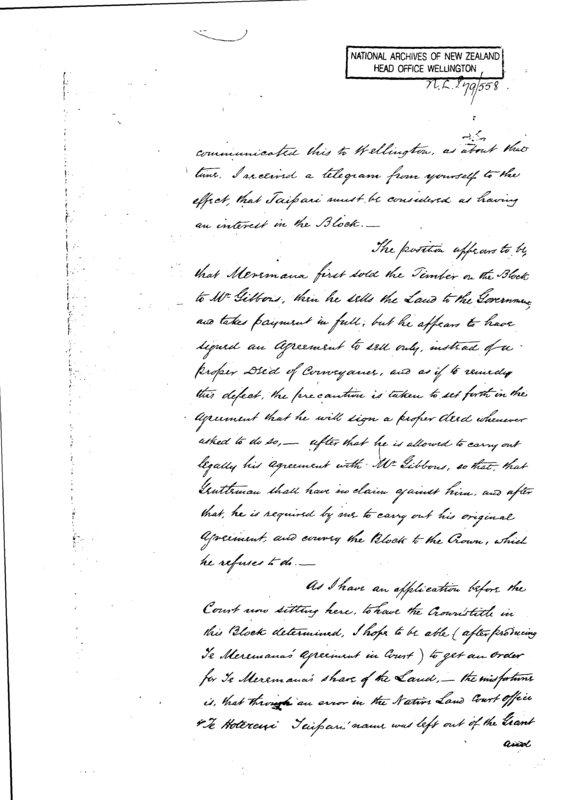 NATIONAL ARCHIVES OF NEW ZEALAND
HEAD OFFICE WELLINGTON
N.L.P 79/558
communicated this to Wellington, as about that
time. I received a telegram from yourself to the
effect, that Taipari must be considered as having
an interest in the Block. —
The position appears to be,
that Meremana first sold the Timber on the Block
to Mr Gibbons, then he sells the Land to the Government,
and takes payment in full, but he appears to have
signed an Agreement to sell only, instead of a
proper Deed of Conveyance, and as if to remedy
this defect, the precaution is taken to set forth in the
Agreement that he will sign a proper deed whenever
asked to do so, — after that he is allowed to carry out
legally his agreement with Mr Gibbons, so that that
Gentleman shall have no claim against him, and after
that, he is required by me to carry out his original
Agreement, and convey the Block to the Crown, which
he refuses to do. —
As I have an application before the
Court now sitting here, to have the Crown's title in
this Block determined, I hope to be able (after producing
Te Meremana's Agreement in Court) to get an order
for Te Meremana's share of the Land, — the misfortune
is, that through an error in the Native Land Court Office
Te Hotereni Taipari's name was left out of the Grant
and